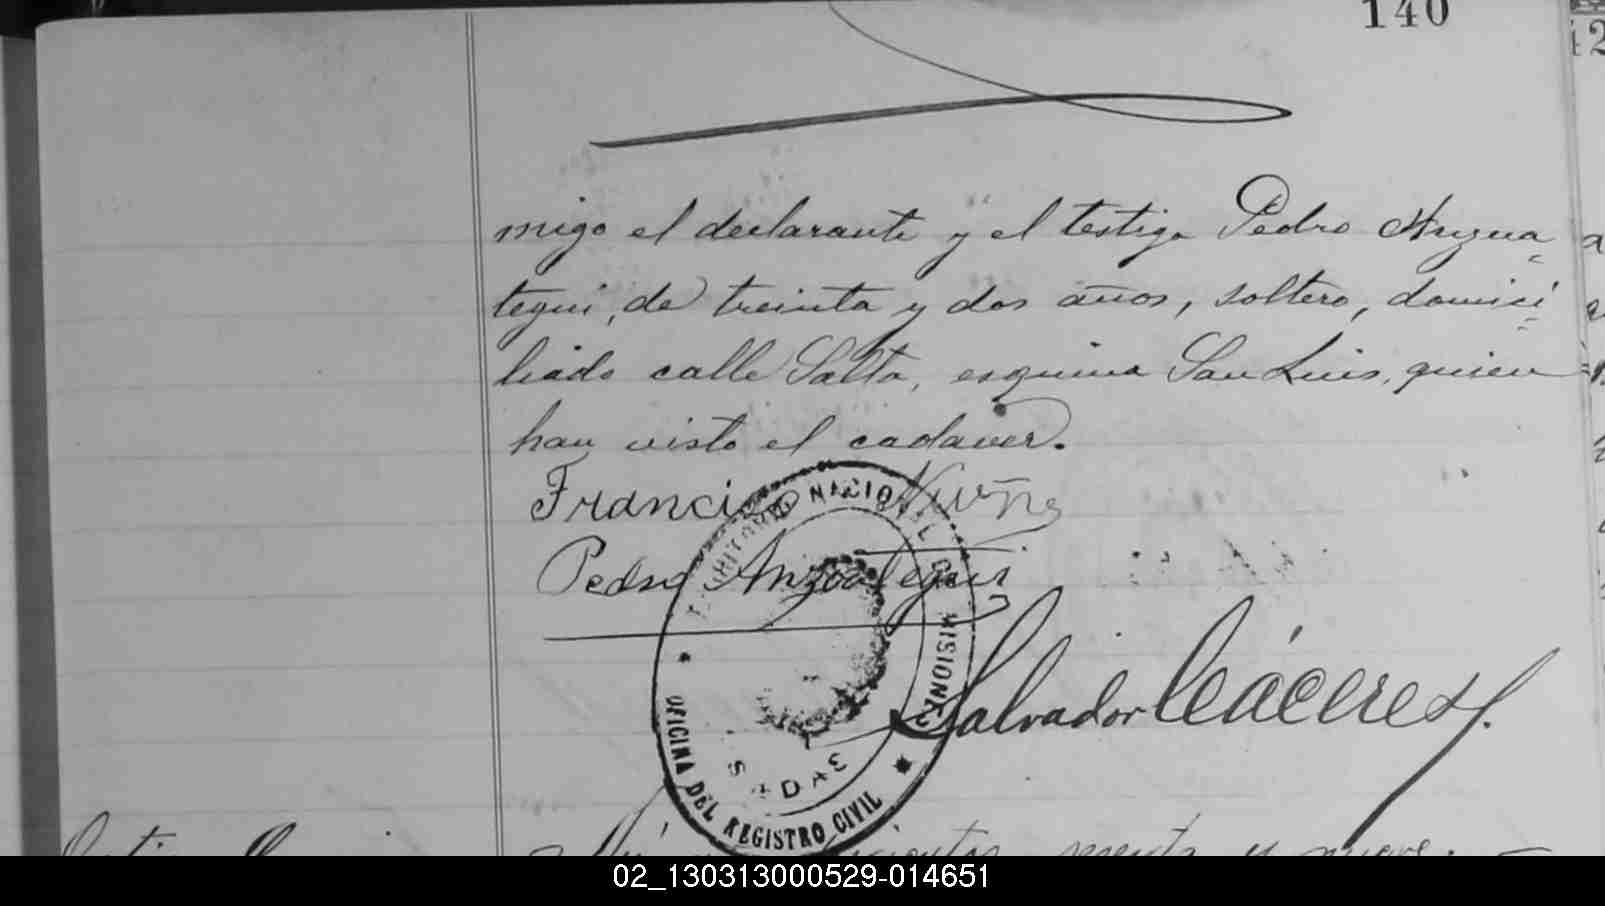 140
migo el declarante y el testigo Pedro Anzua=
tegui, de treinta y dos años, soltero, domici=
liado calle Salta, esquina San Luis, quien
han visto el cadaver.
Francisco Nuñe
Pedro Anzoategui
Salvador Cáceres.
TERRITORIO NACIONAL DE MISIONES
OFICINA DEL REGISTRO CIVIL
sesenta y nueve.
02_130313000529-014651